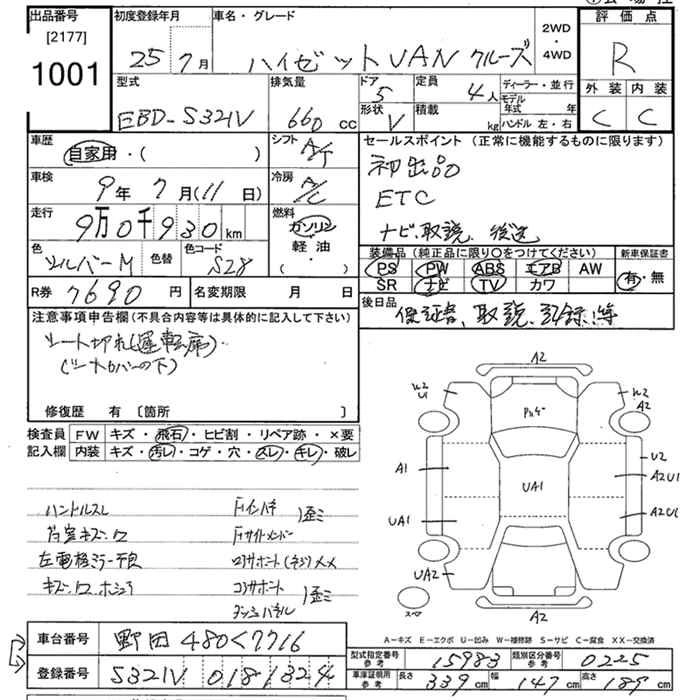 出品番号
[2177]
1001
初度登録年月
25 7月
車名・グレード
ハイゼットVAN クルーズ
2WD
・
4WD
評価点
R
外装 内装
C C
型式
EBD-S321V
排気量
660 cc
ドア
5
形状
V
定員
4人
積載
kg
ディーラー・並行
モデル
年式 年
ハンドル 左・右
車歴
自家用・( )
シフト
A/T
セールスポイント (正常に機能するものに限ります)
初出品
ETC
ナビ取説 後送
車検
9年7月(11日)
冷房
A/C
走行
9万0千930km
燃料
ガソリン
・
軽油
・
( )
色
シルバーM
色替
色コード
S28
装備品(純正品に限り○をつけてください)
PS PW ABS エアB AW
SR ナビ TV カワ
新車保証書
有・無
R券 7690円
名変期限 月 日
後日品
保証書、取説、記録簿
注意事項申告欄(不具合内容等は具体的に記入して下さい)
シート切れ(運転席)
(シートカバーの下)
修復歴 有 [箇所 ]
検査員
記入欄
FW キズ・飛石・ヒビ割・リペア跡・×要
内装 キズ・汚レ・コゲ・穴・スレ・キレ・破レ
ハンドルスレ
左電格ミラー不良
歪ミ
歪ミ
A2
W2
U1
Pｶｹﾞ
W2
A2
A1
U2
A2U1
UA1
UA1
UA2
A2
スペア
A-キズ E-エクボ U-凹み W-補修跡 S-サビ C-腐食 XX-交換済
車台番号
登録番号
S321V 0181324
型式指定番号
参考
15983
類別区分番号
参考
0225
車庫証明用
参考
長さ 339cm 幅 147cm 高さ 187cm